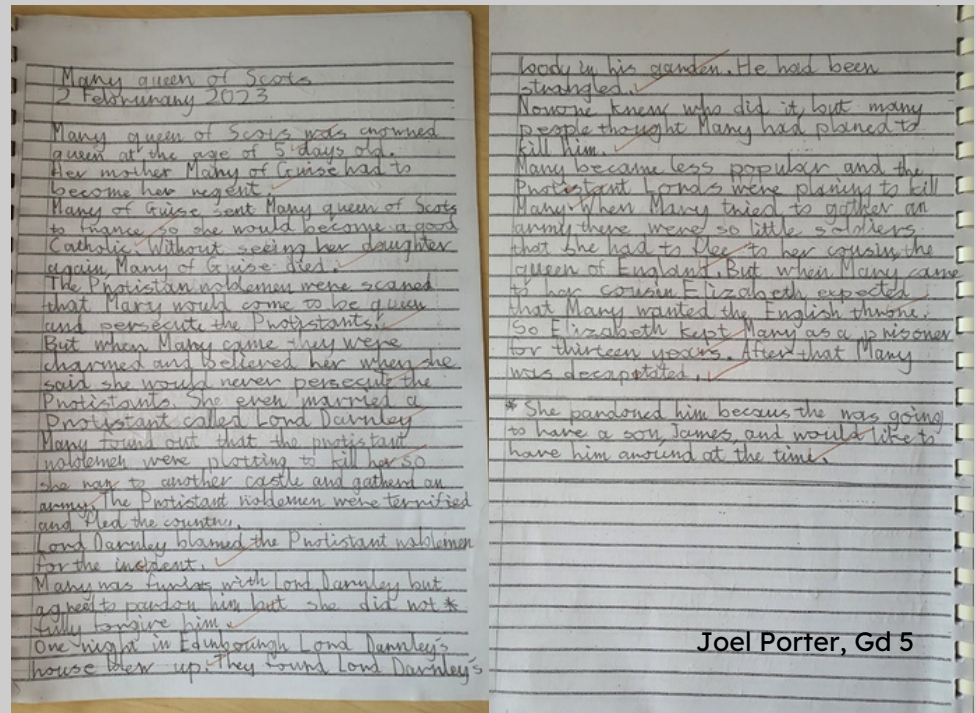 Mary queen of Scots
2 Februrary 2023
Mary queen of Scots was crowned
queen at the age of 5 days old.
Her mother Mary of Guise had to
become her regent.
Mary of Guise sent Mary queen of Scots
to France so she would become a good
Catholic. Without seeing her daughter
again, Mary of Guise died.
The Protistan noblemen were scared
that Mary would come to be queen
and persecute the Protistants.
But when Mary came they were
charmed and believed her when she
said she would never persecute the
Protistants. She even married a
Protistant called Lord Darnley
Mary found out that the protistant
noblemen were plotting to kill her so
she ran to another castle and gatherd an
army. The Protistant noblemen were terrified
and fled the country.
Lord Darnley blamed the Protistant noblemen
for the incident.
Mary was furius with Lord Darnley but
agreed to pardon him but she did not *
fully forgive him.
One night in Edinbourgh Lord Darnley's
house blew up. They found Lord Darnley's
body in his garden. He had been
strangled.
Nowone knew who did it, but many
people thought Mary had planed to
kill him.
Mary became less popular and the
Protistant Lords were planing to kill
Mary. When Mary tried to gather an
army there were so little soldiers
that she had to flee to her cousin, the
queen of England. But when Mary came
to her cousin Elizabeth expected
that Mary wanted the English throne.
So Elizabeth kept Mary as a prisoner
for thirteen years. After that Mary
was decapitated.
* She pardoned him becaus she was going
to have a son, James, and would like to
have him around at the time.
Joel Porter, Gd 5